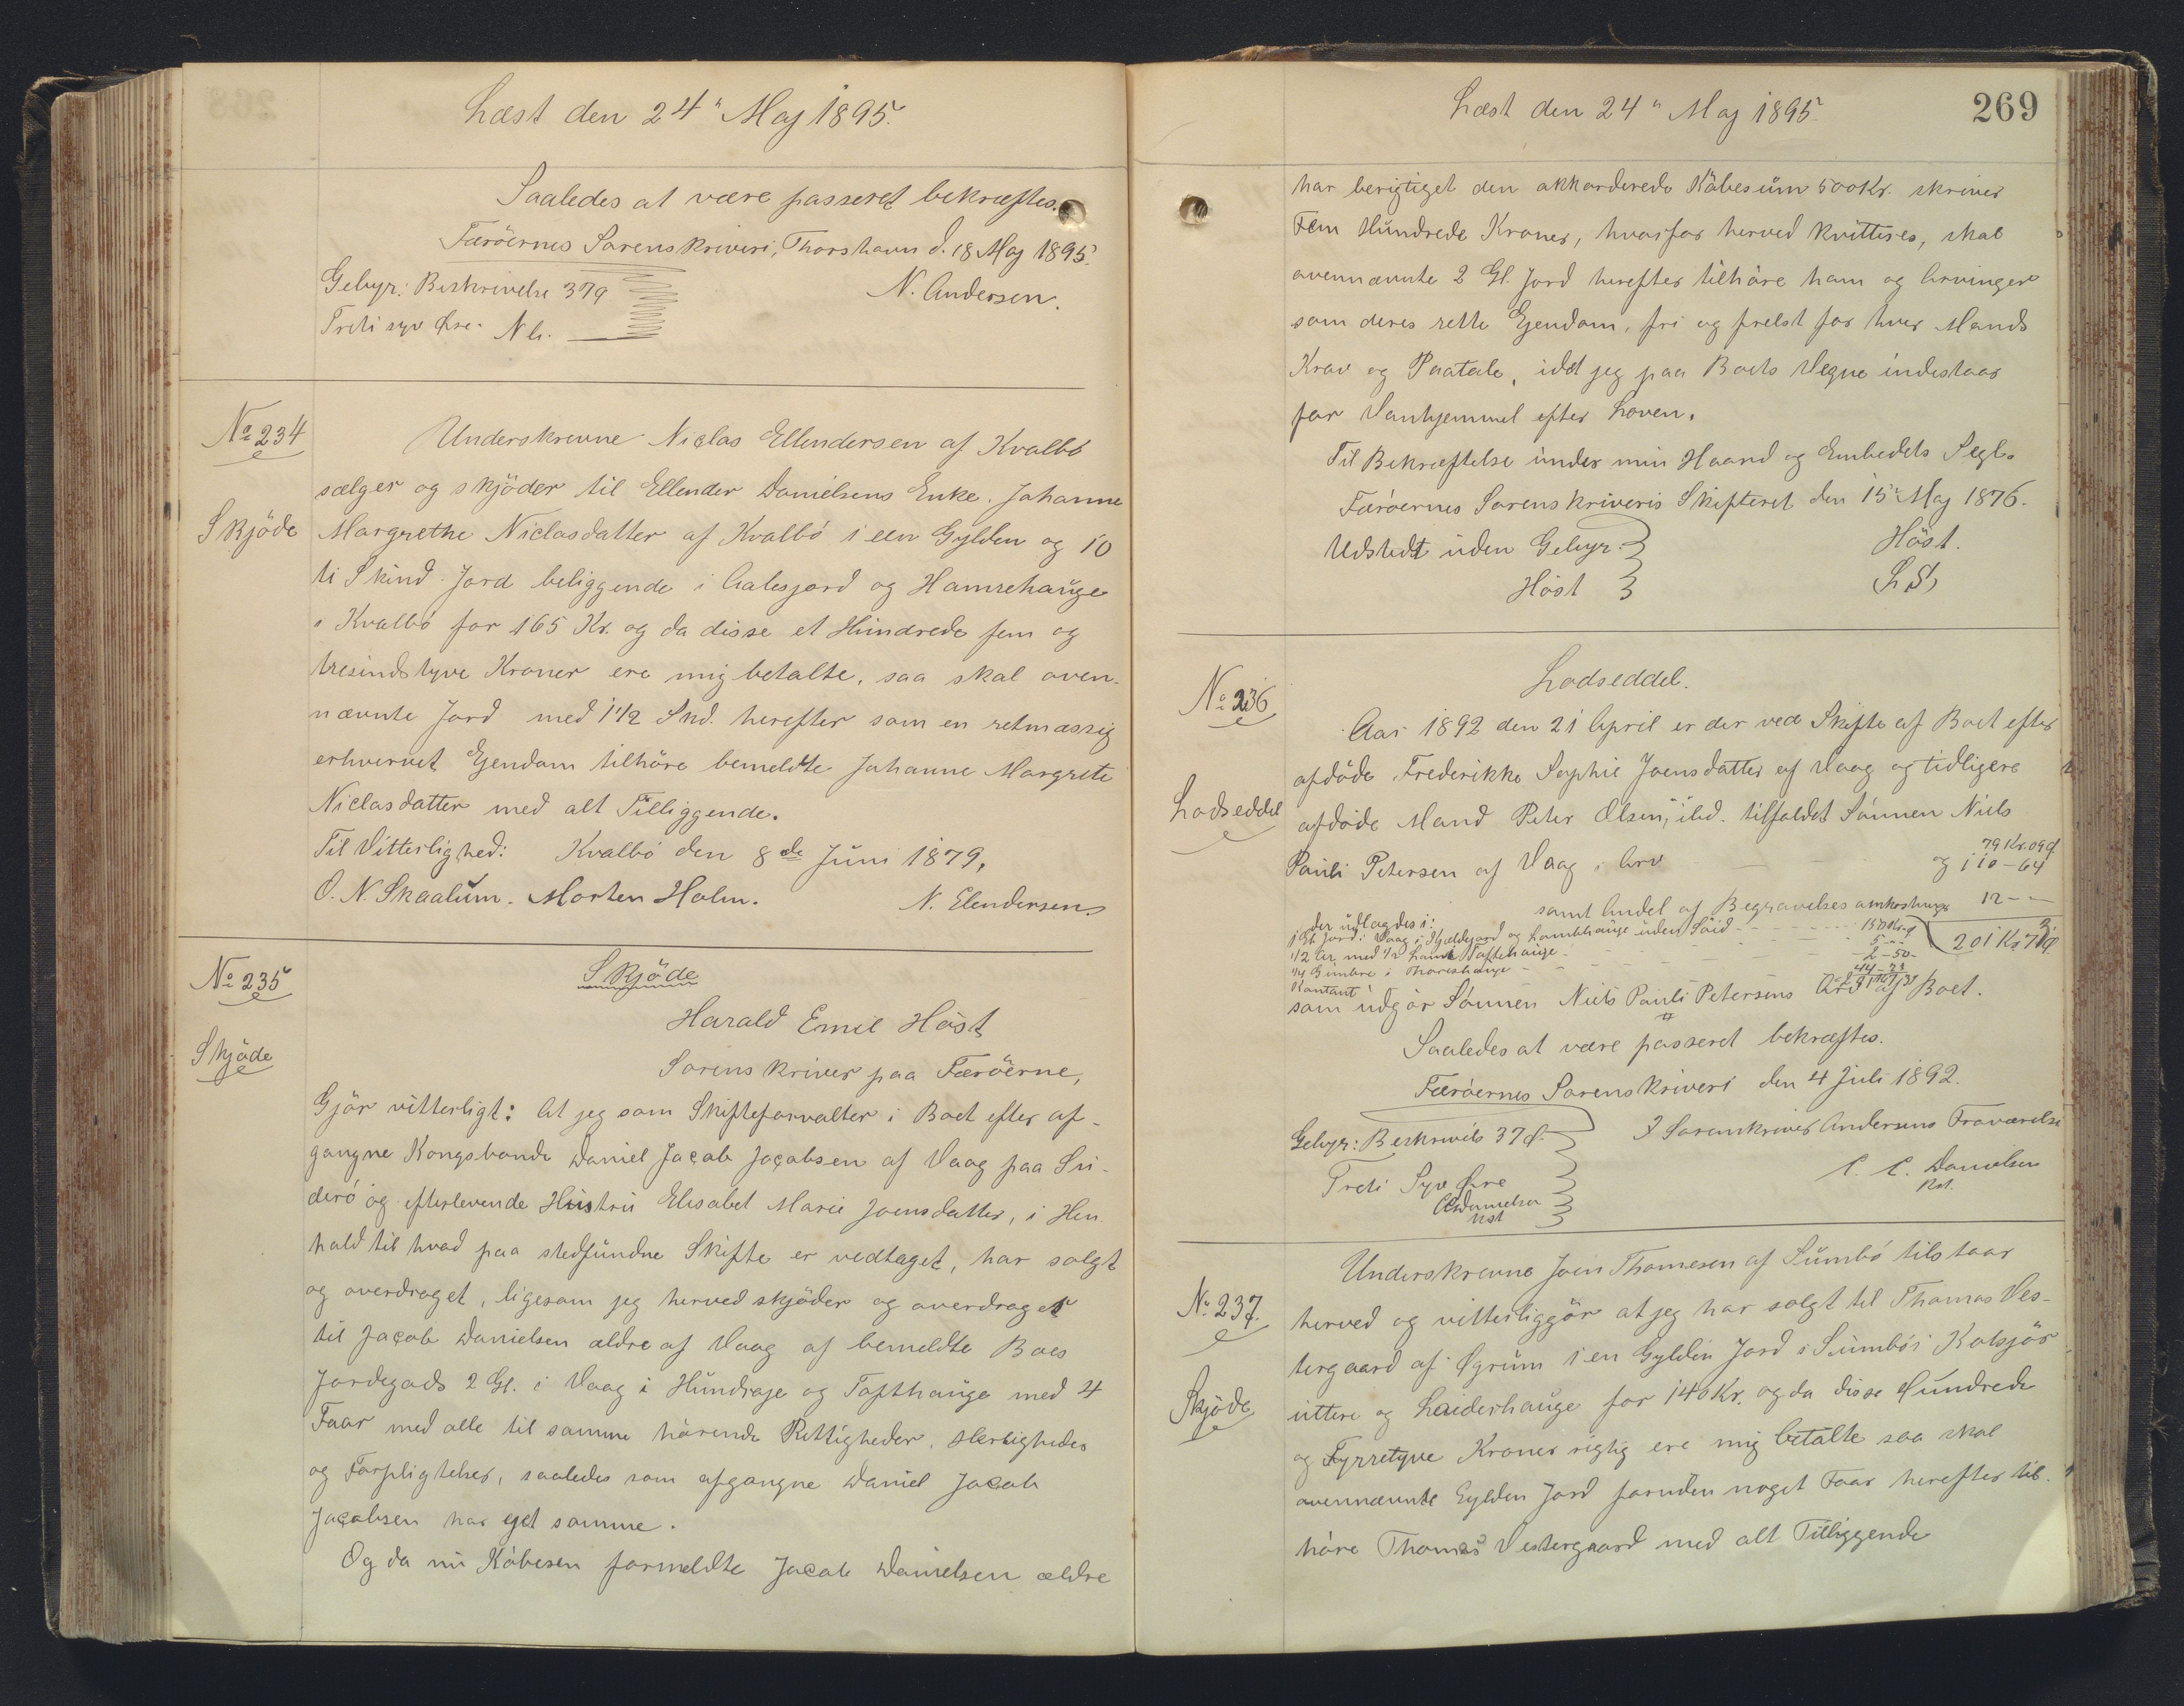 Læst den 24" Maj 1895.
Saaledes at være passeret bekræftes.
Færöernes Sorenskriveri, Thorshavn d. 18 Maj 1895.
Gebyr: Beskrivelse 37ø
N. Andersen.
Treti syv Øre.
No 234
Skjöde
Underskrevne Niclas Ellendersen af Kvalbö
sælger og skjöder til Ellender Danielsens Enke. Johanne
Margrethe Niclasdatter af Kvalbö 1 een Gylden og 10
ti Skind Jord beliggende i Aalesjord og Hamrehauge
i Kvalbö for 165 Kr. og da disse et Hundrede fem og
tresindstyve Kroner ere mig betalte, saa skal oven-
nævnte Jord med 1 1/2 Snd. herefter som en retmæssig
erhvervet Ejendom tilhöre bemeldte Johanne Margrete
Niclasdatter med alt Tilliggende.
Til Vitterlighed: Kvalbö den 8de Juni 1879,
O. N. Skaalum. Morten Holm.
N. Elendersen
No 235
Skjöde
Skjöde
Harald Emil Höst
Sorenskriver paa Færöerne,
Gjör vitterligt: At jeg som Skifteforvalter i Boet efter af-
gangne Kongsbonde Daniel Jacob Jacobsen af Vaag paa Sü-
derö og efterlevende Hustru Elisabet Marie Joensdatter, i Hen-
hold til hvad paa stedfundne Skifte er vedtaget, har solgt
og overdraget, ligesom jeg herved skjöder og overdrager
til Jacob Danielsen ældre af Vaag af bemeldte Boes
Jordegods 2 Gl. i Vaag i Hundraje og Tofthauge med 4
Faar med alle til samme hörende Rettigheder, Herligheder
og Forpligtelser, saaledes som afgangne Daniel Jacob
Jacobsen har ejet samme.
Og da nu Köberen formeldte Jacob Danielsen ældre
Læst den 24" Maj 1895
269
har berigtiget den akkorderede Köbesum 500 Kr. skriver
Fem Hundrede Kroner, hvorfor herved kvitteres, skal
ovennævnte 2 Gl. Jord herefter tilhöre ham og Arvinger
som deres rette Ejendom, fri og frelst for hver Mands
Krav og Paatale, idet jeg paa Boets Vegne indestaar
for Vanhjemmel efter Loven.
Til Bekræftelse under min Haand og Embedets Segl.
Færöernes Sorenskriveris Skifteret den 15" Maj 1876.
Udstedt uden Gebyr.
Höst.
Höst
L.S.
No 236
Lodseddel
Lodseddel.
Aar 1892 den 21 April er der ved Skifte af Boet efter
afdöde Frederikke Sophie Joensdatter af Vaag og tidligere
afdöde Mand Peter Olsen, ibd. tilfaldet Sönnen Niels
Pauli Petersen af Vaag i Arv
79 Kr. 09 ø
og 110 – 64
samt Andel af Begravelsesomkostninger 12 - -
der udlagdes i:
201 Kr 73 ø
1 Gl. Jord i Vaag i Hjældegaard og Lambhauge uden Söid 150 Kr ø
5 - -
1/4 Gimbre i Thoreshauge
2 - 50 -
Kontant
44 - 23
som udgör Sönnen Niels Pauli Petersens Arv af Boet.
Saaledes at være passeret bekræftes.
Færöernes Sorenskriveri den 4 Juli 1892.
Gebyr: Beskrivels 37 ø.
I Sorenskriver Andersens Fraværelse
Treti Syv Øre
C. C. Danielsen
Cst.
CCDanielsen
cst
No. 237.
Skjöde
Underskrevne Joen Thomesen af Sumbö tilstaar
herved og vitterliggör at jeg har solgt til Thomas Ves-
tergaard af Øgrum 1 en Gylden Jord i Sumbö i Kolsjör
uttere og Laiderhauge for 140 Kr. og da disse Hundrede
og Fyrretyve Kroner rigtig ere mig betalte saa skal
ovennævnte Gylden Jord foruden noget Faar herefter til-
höre Thomas Vestergaard med alt Tilliggende